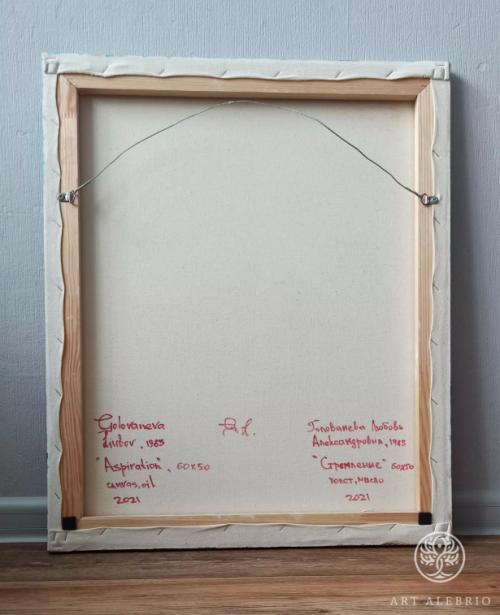 Golovaneva
Liubov, 1985
"Aspiration", 60x50
canvas, oil
2021
Голованева Любовь
Александровна, 1985
"Стремление" 60x50
холст, масло
2021
ART ALEBRIO